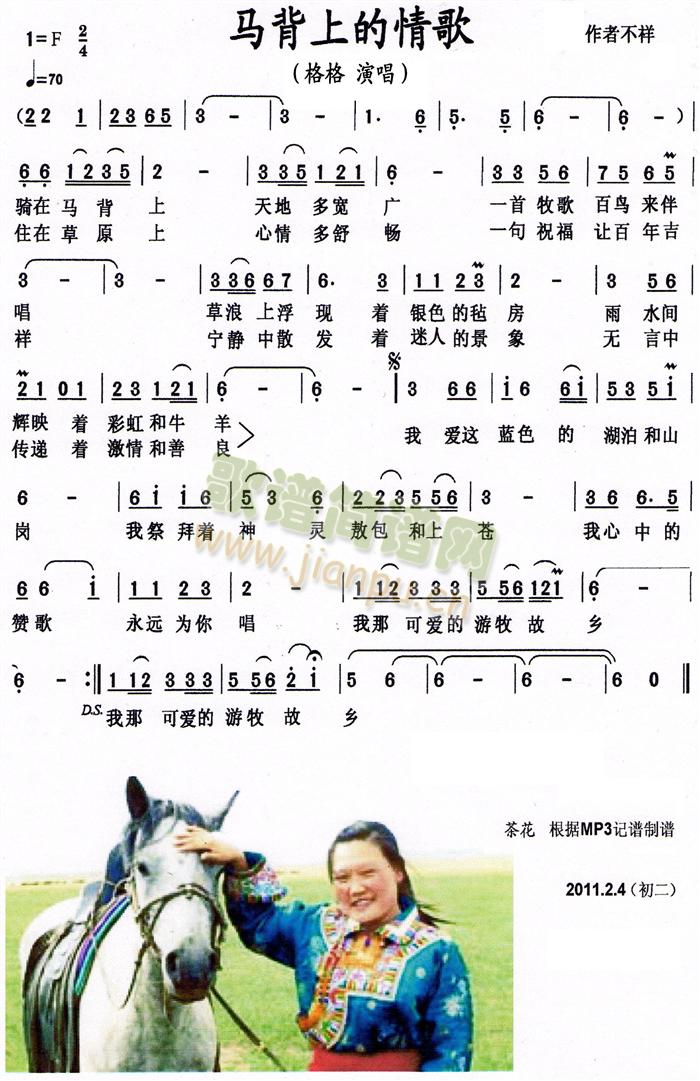 马背上的情歌
1=F 2/4
作者不祥
♩=70
（格格 演唱）
(2 2 1 | 2 3 6 5 | 3 - | 3 - | 1. 6 | 5. 5 | 6 - | 6 - ) |
6 6 1 2 3 5 | 2 - | 3 3 5 1 2 1 | 6 - | 3 3 5 6 | 7 5 6 5 |
骑在 马 背 上 天地 多宽 广 一首 牧歌 百鸟 来伴
住在 草 原 上 心情 多舒 畅 一句 祝福 让百 年吉
3 - | 3 - | 3 3 6 6 7 | 6. 3 | 1 1 2 3 | 2 - | 3 5 6 |
唱 草浪 上浮 现 着 银色 的毡 房 雨 水间
祥 宁静 中散 发 着 迷人 的景 象 无 言中
2 1 0 1 | 2 3 1 2 1 | 6 - | 6 - | 3 6 6 | i 6 6 i | 5 3 5 i |
辉映 着 彩虹 和牛 羊
传递 着 激情 和善 良
我 爱这 蓝色 的 湖泊 和山
6 - | 6 i i 6 | 5 3 6 | 2 2 3 5 5 6 | 3 - | 3 6 6. 5 |
岗 我祭 拜着 神 灵 敖包 和上 苍 我心 中的
6 6 i | 1 1 2 3 | 2 - | 1 1 2 3 3 3 | 5 5 6 1 2 1 | 6 - |
赞歌 永远 为你 唱 我那 可爱的 游牧 故 乡
6 - :‖ 1 1 2 3 3 3 | 5 5 6 2 i | 5 6 | 6 - | 6 - | 6 0 ‖
D.S. 我那 可爱的 游牧 故 乡
歌谱简谱网
www.jianpu.cn
茶花 根据MP3记谱制谱
2011.2.4（初二）